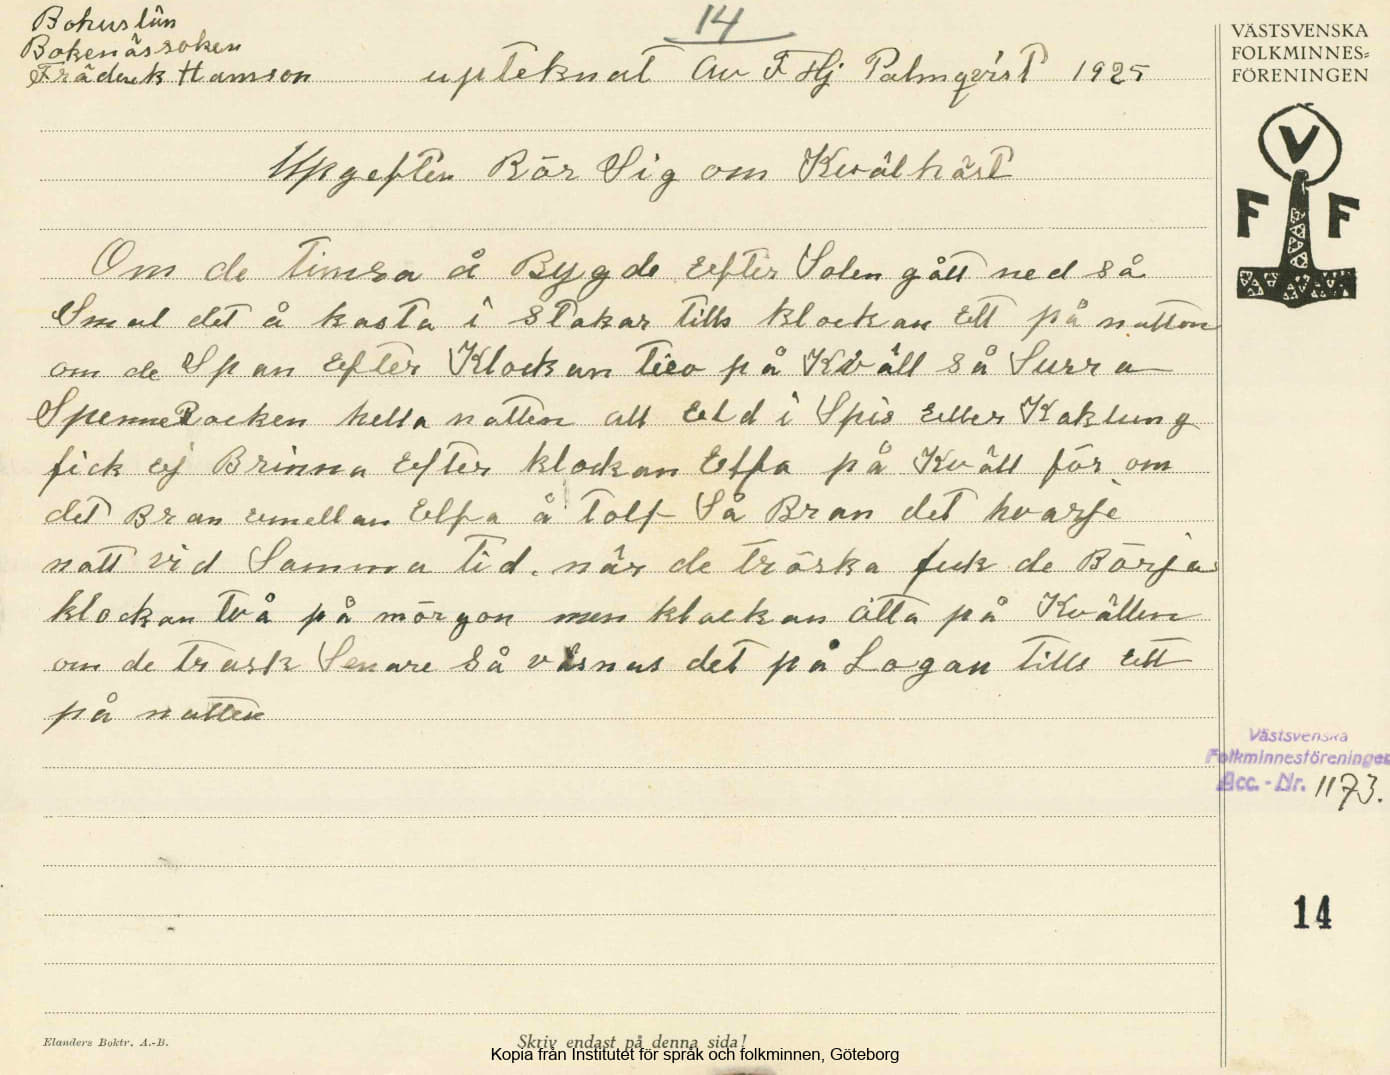 14
Bohuslän
Bokenässoken
Fräderek Hanson
upteknat Av F Hj Palmqvist 1925
Upgeften Rör Sig om Kvälhäst
Om de timra å Bygde Eefter Solen gått ned så
Smal det å kasta i Stakar tills klockan Ett på natten
om de Span Eefter Klockan tieo på Kväll så Surra
SpenneRocken hella natten all Eeld i Spis Eeller Kaklung
fick Ej Brinna Efter klockan Elfa på Kväll för om
det Bran emellan Elfa å tolf Så Bran det hvarje
natt vid Samma tid. när de tröska fick de Börja
klockan två på mörgon men klockan Åtta på Kvällen
om de trask Senare Så väsnas det på Logan tills Ett
på natten
VÄSTSVENSKA
FOLKMINNES=
FÖRENINGEN
V
F F
Västsvenska
Folkminnesföreningen
Acc. - Nr. 1173.
14
Elanders Boktr. A.-B.
Skriv endast på denna sida!
Kopia från Institutet för språk och folkminnen, Göteborg